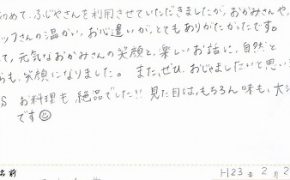 めて、ふじやさんを利用させていただきましたが、おかみさんや、
ッフさんの温かい、お心遣いが、とてもありがたかったです。
て、元気なおかみさんの笑顔と、楽しいお話に、自然と
らも、笑顔になりました。また、ぜひ、おじゃましたいと思い
S お料理も、絶品でした!! 見た目は、もちろん味も、大
です☺
名前
H23 年 2 月 2